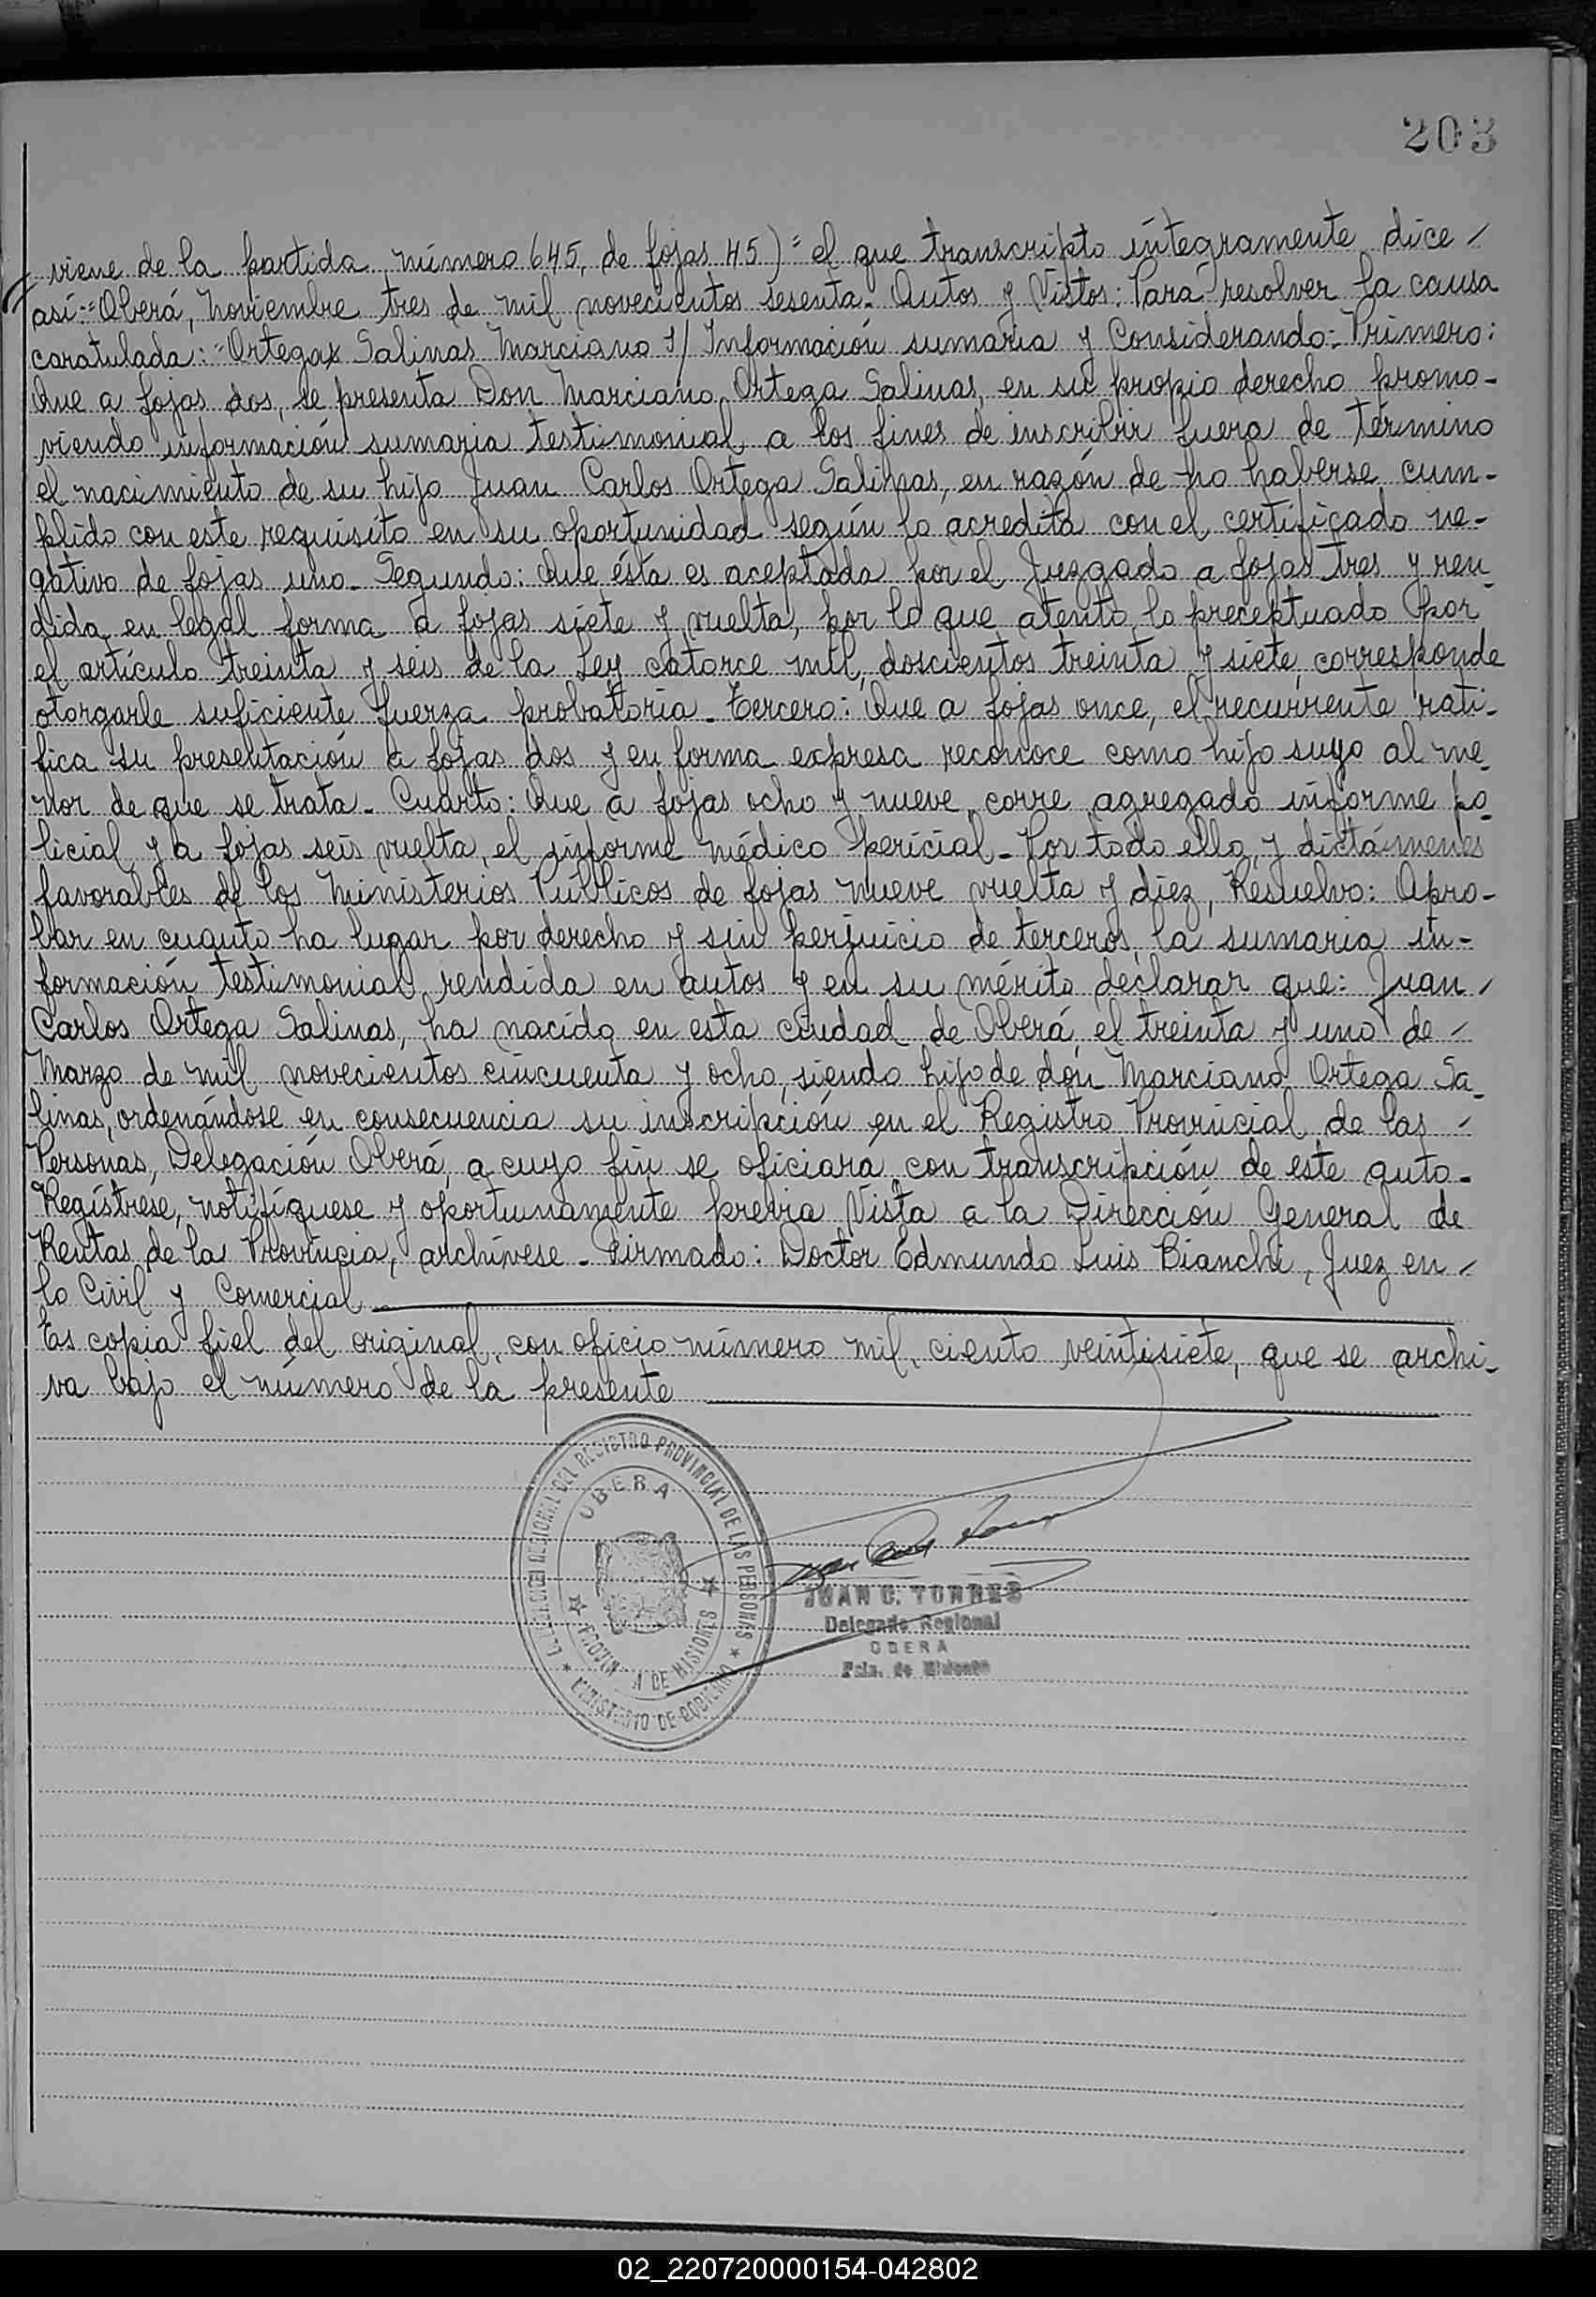 203
viene de la partida número 645, de fojas 45) = el que transcripto íntegramente dice /
así: "Oberá, Noviembre tres de mil novecientos sesenta. Autos y Vistos: Para resolver la causa
caratulada: "Ortega x Salinas Marciano S/ Información sumaria y Considerando: Primero:
Que a fojas dos, se presenta Don Marciano Ortega Salinas, en su propio derecho promo-
viendo información sumaria testimonial, a los fines de inscribir fuera de término
el nacimiento de su hijo Juan Carlos Ortega Salinas, en razón de no haberse cum-
plido con este requisito en su oportunidad según lo acredita con el certificado ne-
gativo de fojas uno. Segundo: Que ésta es aceptada por el Juzgado a fojas tres y ren-
dida en legal forma a fojas siete y vuelta, por lo que atento lo preceptuado por
el artículo treinta y seis de la Ley catorce mil, doscientos treinta y siete, corresponde
otorgarle suficiente fuerza probatoria. Tercero: Que a fojas once, el recurrente rati-
fica su presentación a fojas dos y en forma expresa reconoce como hijo suyo al me-
nor de que se trata. Cuarto: Que a fojas ocho y nueve corre agregado informe po-
licial y a fojas seis vuelta, el informe médico pericial. Por todo ello, y dictámenes
favorables de los Ministerios Públicos de fojas nueve vuelta y diez, Resuelvo: Apro-
bar en cuanto ha lugar por derecho y sin perjuicio de terceros, la sumaria in-
formación testimonial rendida en autos y en su mérito declarar que: Juan /
Carlos Ortega Salinas, ha nacido en esta ciudad de Oberá, el treinta y uno de /
Marzo de mil novecientos cincuenta y ocho, siendo hijo de don Marciano Ortega Sa-
linas, ordenándose en consecuencia su inscripción en el Registro Provincial de las /
Personas, Delegación Oberá, a cuyo fin se oficiará con transcripción de este auto.
Regístrese, notifíquese y oportunamente previa Vista a la Dirección General de
Rentas de la Provincia, archívese. Firmado: Doctor Edmundo Luis Bianchi, Juez en /
lo Civil y Comercial
Es copia fiel del original, con oficio número mil, ciento veintisiete, que se archi-
va bajo el número de la presente
REGIONAL DEL REGISTRO PROVINCIAL DE LAS PERSONAS
OBERA
DE MISIONES
MINISTERIO DE GOBIERNO
JUAN C. TORRES
Delegado Regional
OBERA
Pcia. de Misiones
02_220720000154-042802